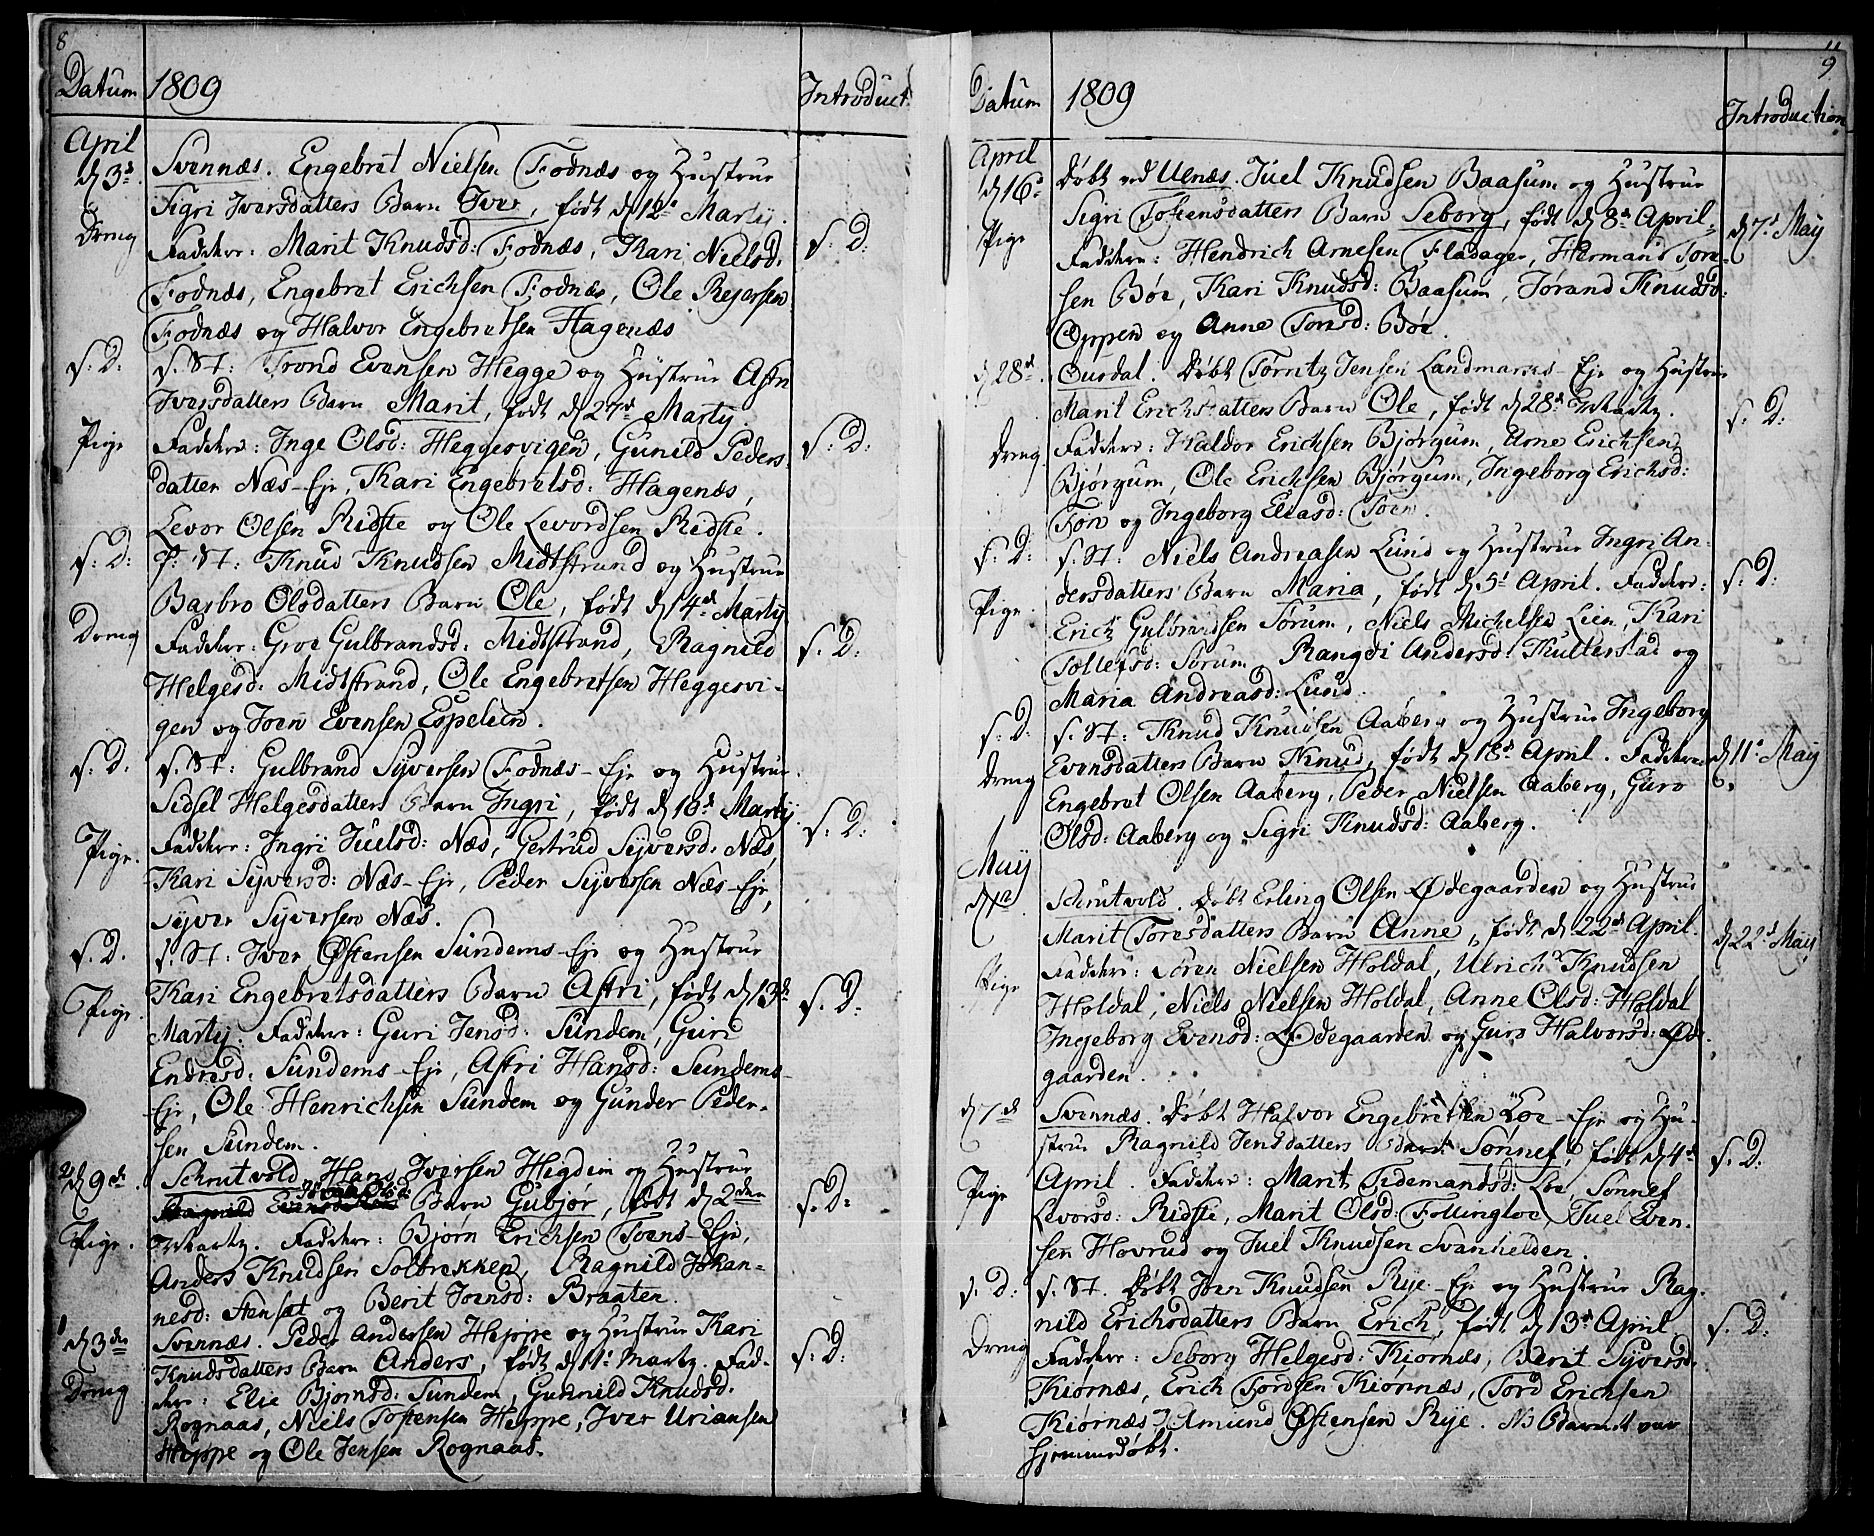 8
Datum 1809 Introduct:
April
d 3d Svennæs. Engebret Nielsen Fodnæs og Hustrue
Sigri Iversdatters Barn Iver, født d 12d Martÿ.
Dreng Faddere: Marit Knudsd: Fodnæs, Kari Nielsd: s. D:
Fodnæs, Engebret Erichsen Fodnæs, Ole Rejersen
Fodnæs og Halvor Engebretsen Hagenæs
s. D: s. St: Trond Evensen Hegge og Hustrue Astri
Iversdatters Barn Marit, født d 27d Martÿ.
Pige Faddere: Inge Olsd: Heggesvigen, Gunild Peders- s. D:
datter Næs-Eje, Kari Engebretsd: Hagenæs,
Levor Olsen Ridste og Ole Levordsen Ridste.
s. D: s. St: Knud Knudsen Midtstrand og Hustrue
Barbro Olsdatters Barn Ole, født d 4d Martÿ
Dreng Faddere: Groe Gulbrandsd: Midtstrand, Ragnild s. D:
Helgesd: Midtstrand, Ole Engebretsen Heggesvi-
gen og Joen Evensen Espelien.
s. D. s. St: Gulbrand Syversen Fodnæs-Eje og Hustrue
Sidsel Helgesdatters Barn Ingri, født d 10d Martÿ.
Pige. Faddere: Ingri Juelsd: Næs, Gertrud Syversd: Næs, s. D:
Kari Syversd: Næs-Eje, Peder Syversen Næs-Eje,
Syver Syversen Næs.
s. D. s. St: Iver Østensen Sundems-Eje og Hustrue
Kari Engebretsdatters Barn Astri, født d 13d
Pige. Martÿ. Faddere: Guri Jensd: Sundem, Guri s. D:
Endresd: Sundems-Eje, Astri Hansd: Sundems-
Eje, Ole Henrichsen Sundem og Gunder Peder-
sen Sundem.
d 9d. Schrutvold Hans Iversen Higdem og Hustrue
Barn Gubjør, født d 2den s. D:
Pige. Martz. Faddere: Bjørn Erichsen Toens-Eje,
Anders Knudsen Solbrekken, Ragnild Johan-
nesd: Stensæt og Berit Joensd: Braaten.
d 3den Svennæs. Peder Andersen Heppe og Hustrue Kari
Knudsdatters Barn Anders, født d 11d Martz. Fad- s. D:
Dreng dere: Elie Bjørnsd: Sundem, Gunnild Knudsd:
Rognaas, Niels Tostensen Heppe, Iver Uriansen
Heppe og Ole Jensen Rognaas.
11
9
Datum 1809 Introduction
April
d 16d Døbt ved Ulnæs. Juel Knudsen Baasum og Hustrue
Sigri Tostensdatters Barn Seborg, født d 8d April
Pige Faddere: Hendrich Arnesen Fladager, Herman Tore- d 7d May
sen Bøe, Kari Knudsd: Baasum, Jørand Knudsd:
Oppen og Anne Toresd: Bøe.
d 28d. Ourdal. Døbt Jensen Landmarks-Eje og Hustrue
Marit Erichsdatters Barn Ole, født d 28d Martz. s. D:
Dreng. Faddere: Haldor Erichsen Bjørgum, Arne Erichsen
Bjørgum, Ole Erichsen Bjørgum, Ingeborg Erichsd:
Tøn og Ingeborg Eliasd: Toen.
s. D: s. St: Niels Andreasen Lund og Hustrue Ingri An-
dersdatters Barn Maria, født d 5d April. Faddere: s. D:
Pige. Erich Gulbrandsen Sørum, Niels Michelsen Lien, Kari
Tollefsd: Sørum, Rangdi Andersd: Thulterstad og
Maria Andreasd: Lund.
s. D: s. St: Knud Knudsen Aaberg og Hustrue Ingeborg
Dreng Evensdatters Barn Knud, født d 18d April. Faddere d 11d May
Engebret Olsen Aaberg, Peder Nielsen Aaberg, Guro
Olsd: Aaberg og Sigri Knudsd: Aaberg.
Maÿ
d 1d Schrutvold. Døbt Erling Olsen Ødegaarden og Hustrue
Marit Toresdatters Barn Anne, født d 22d April. d 22d Maÿ
Pige Faddere: Søren Nielsen Holdal, Ulrich Knudsen
Holdal, Niels Nielsen Holdal, Anne Olsd: Holdal
Ingeborg Evensd: Ødegaarden og Guro Halvorsd: Øde-
gaarden.
d 7d Svennæs. Døbt Halvor Engebretsen Loe-Eje og Hu-
strue Ragnild Jensdatters Barn Sønnef, født d 4d s. D:
Pige April. Faddere: Marit Tidemandsd: Loe, Sønnef
Levorsd: Ridste, Marit Olsd: Follingloe, Juel Even-
sen Hovrud og Juel Knudsen Svanhelden.
s. D: s. St. Døbt Joen Knudsen Rye-Eje og Hustrue Rag-
nild Erichsdatters Barn Erich, født d 13d April s. D:
Dreng Faddere: Seborg Helgesd: Kiørnæs, Berit Syversd:
Kiørnæs, Erich Tordsen Kiørnæs, Tord Erichsen
Kiørnæs Amund Østensen Rye. NB Barnet var
hjemmedøbt.